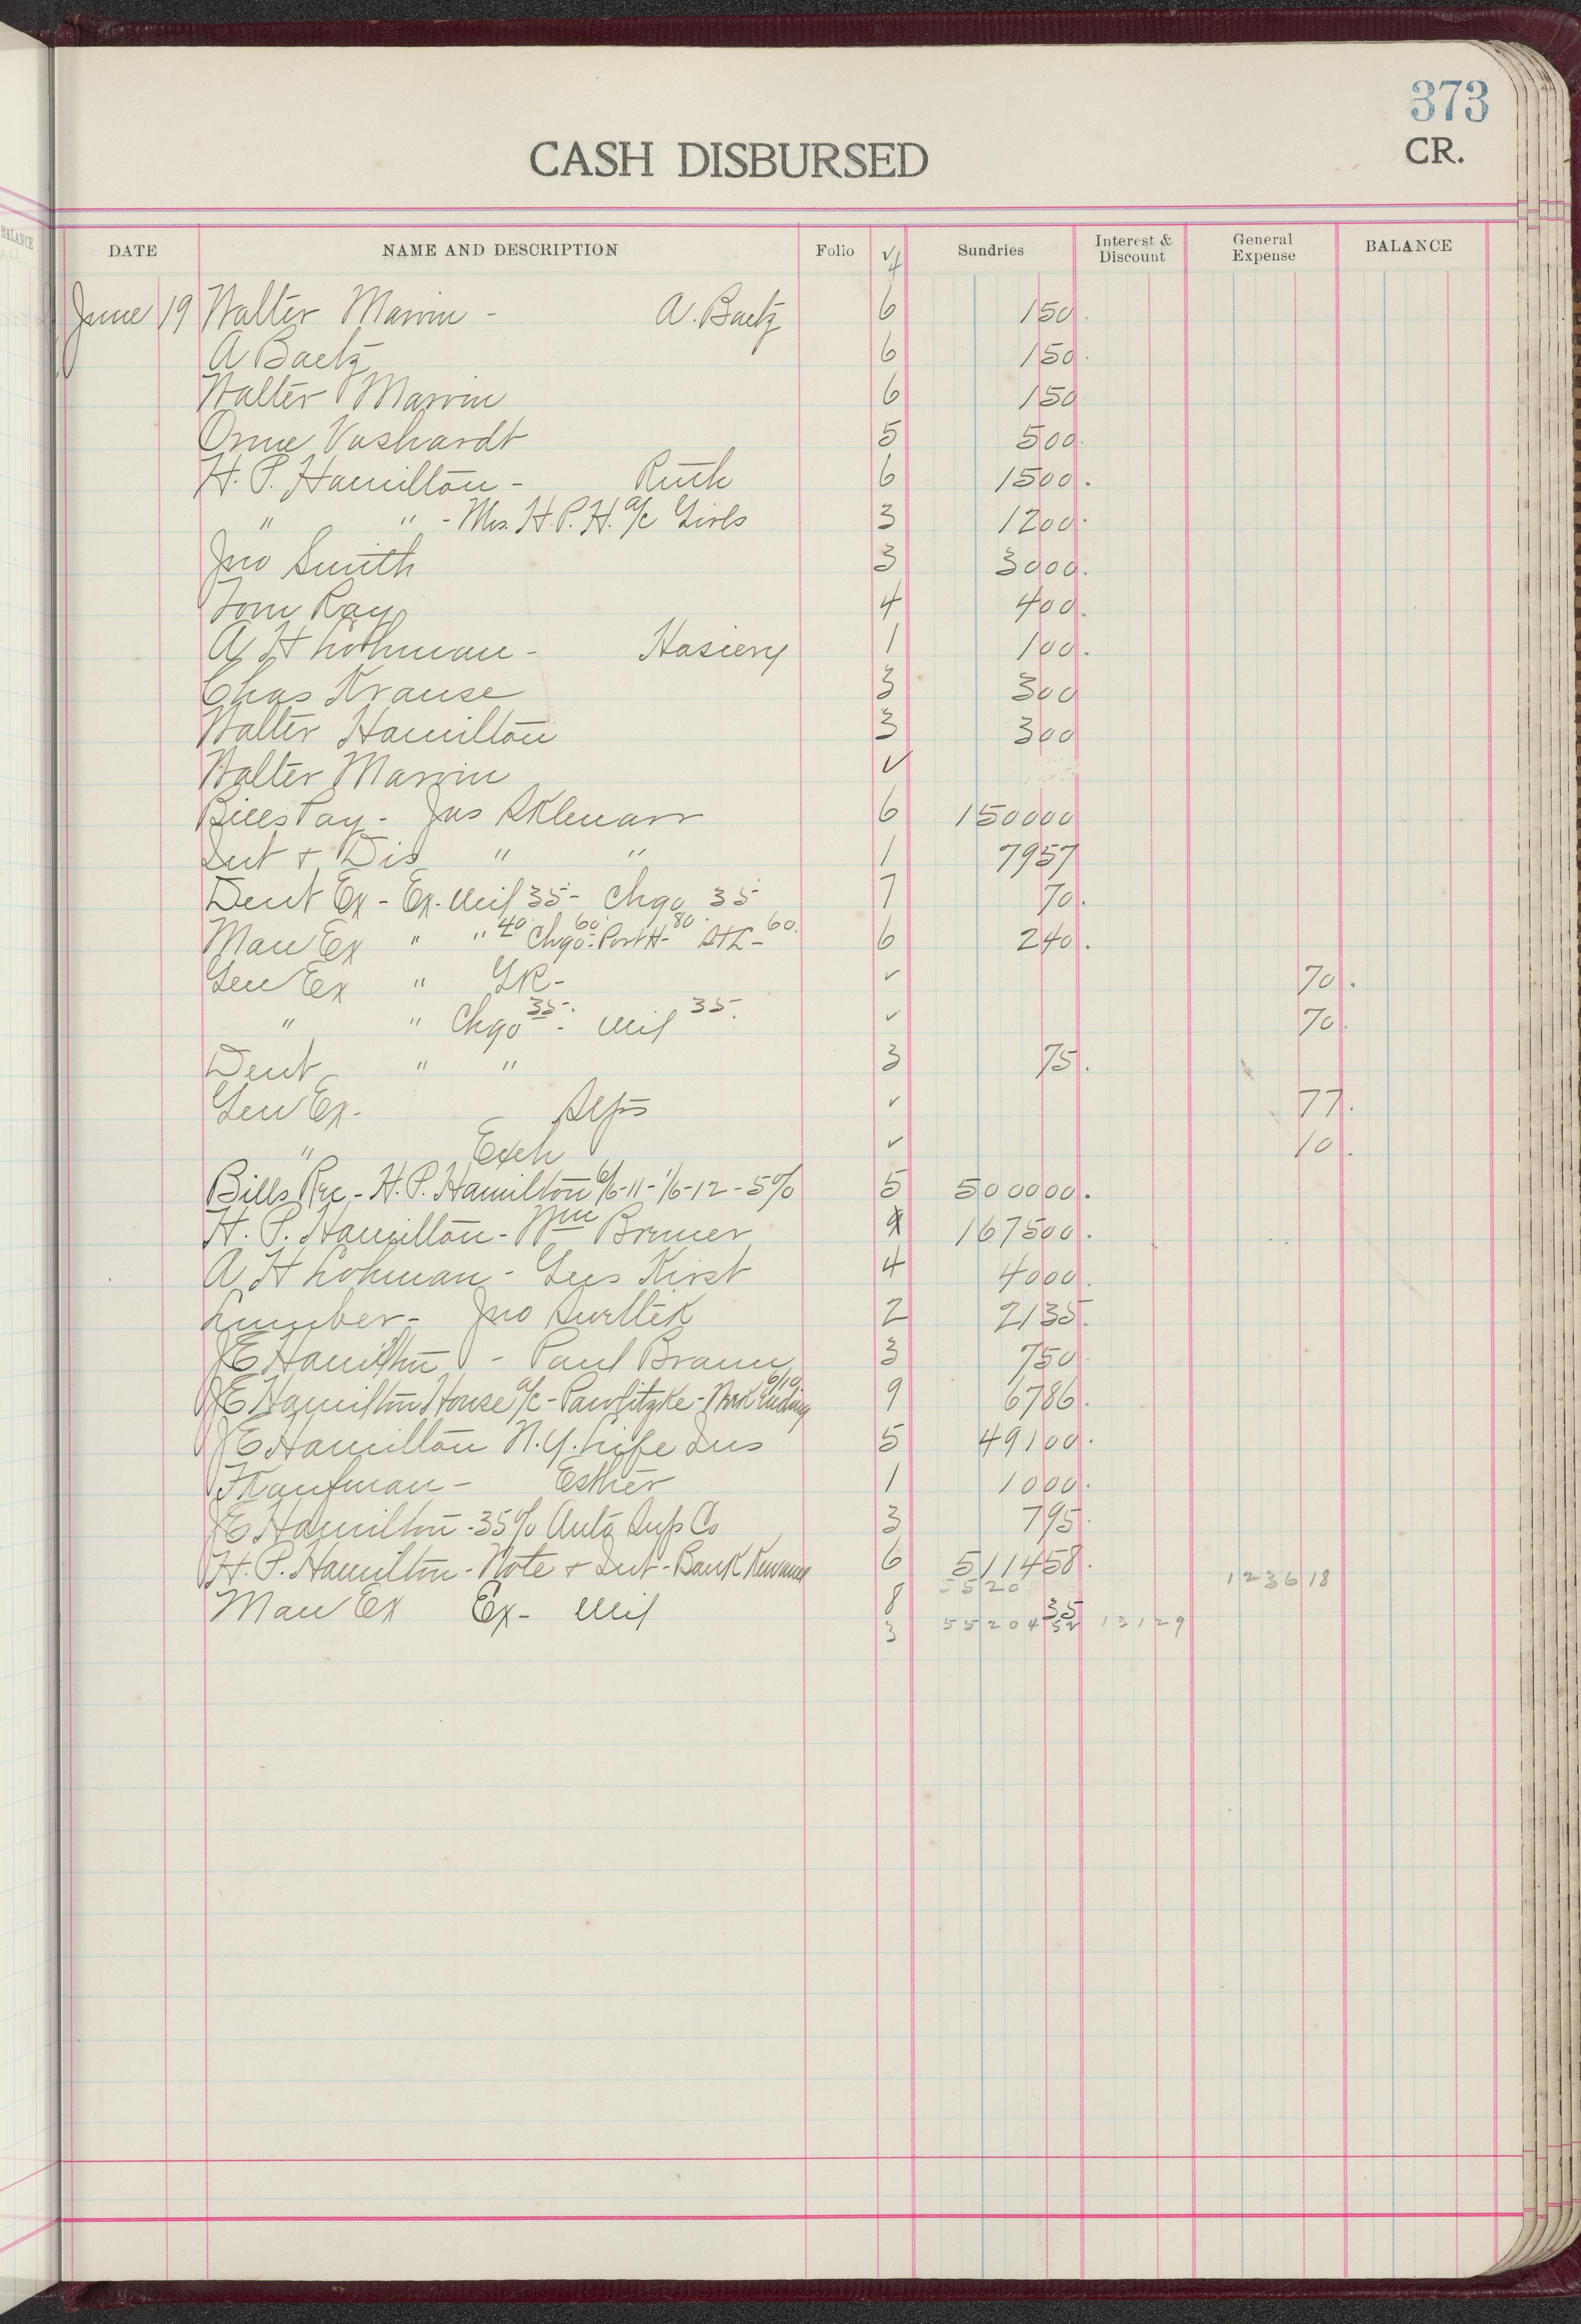 373
CASH DISBURSED CR.
BALANCE
DATE NAME AND DESCRIPTION Folio √ Sundries Interest & Discount General Expense BALANCE
4
June 19 Walter Marvin - A. Baetz 6 150.
A Baetz 6 150.
Walter Marvin 6 150
Orme Vashardt 5 500.
H. P. Hamilton - Ruth 6 1500.
" " - Mrs. H. P. H. a/c Girls 3 1200.
Jno Smith 3 3000.
Tom Ray 4 400.
A H Lohman - Hasiery 1 100.
Chas Krause 3 300
Walter Hamilton 3 300
Walter Marvin √
Bills Pay - Jas 6 150000
Int + Dis " " 1 7957
Dent Ex - Ex. Mil 35 - Chgo 35 7 70.
Man Ex " " 40 Chgo 60 - Port H - 80. St L - 60. 6 240.
Gen Ex " GR - √ 70.
" " Chgo 35 - Mil 35. √ 70.
Dent " " 3 75.
Gen Ex - √ 77.
" Exch √ 10.
Bills Rec - H. P. Hamilton 6/6-11 - 1/6-12 - 5% 5 500000.
H. P. Hamilton - Wm Bremer 4 167500.
A H Lohman - Gus Kirst 4 4000.
Lumber - Jno 2 2135.
J E Hamilton - Paul Braun 3 750
J E Hamilton House a/c - Pawlitzke - Week Ending 6/10 9 6786.
J E Hamilton N. Y. Life Ins 5 49100.
F Kaufman - Esther 1 1000.
J E Hamilton - 35% Auto Sup Co 3 795.
H. P. Hamilton - Note + Int - Bank Kewaunee 6 511458.
5520 123618
Man Ex Ex - Mil 8 35
3 5520452 13129